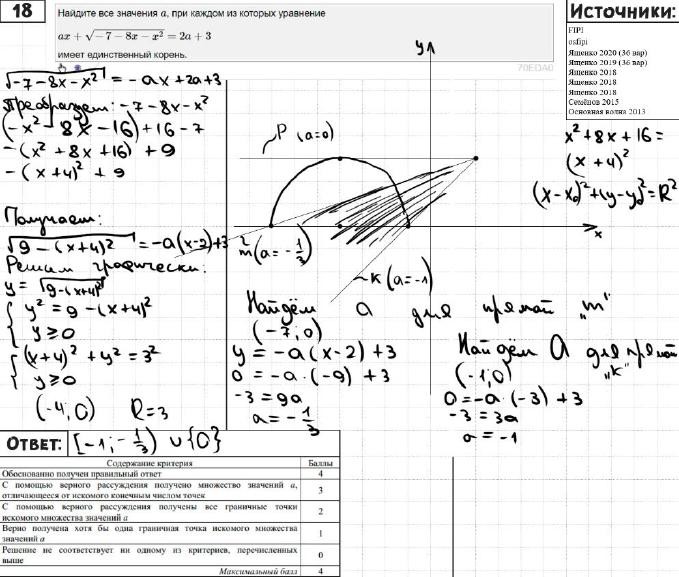 18
Найдите все значения a, при каждом из которых уравнение
ax + √−7 − 8x − x² = 2a + 3
имеет единственный корень.
70EDA0
Источники:
FIPI
osfipi
Ященко 2020 (36 вар)
Ященко 2019 (36 вар)
Ященко 2018
Ященко 2018
Ященко 2018
Семёнов 2015
Основная волна 2013
√-7-8x-x² = -ax+2a+3
Преобразуем: -7-8x-x²
(-x²-8x-16)+16-7
-(x²+8x+16)+9
-(x+4)²+9
Получаем:
√9-(x+4)² = -a(x-2)+3
Решим графически:
y = √9-(x+4)²
y² = 9-(x+4)²
y ≥ 0
(x+4)²+y² = 3²
y ≥ 0
(-4;0) R=3
y
x
P (a=0)
m(a=-1/3)
k(a=-1)
x²+8x+16=
(x+4)²
(x-x₀)²+(y-y₀)²=R²
Найдём a для прямой "m"
(-7;0)
y = -a(x-2)+3
0 = -a·(-9)+3
-3 = 9a
a = -1/3
Найдём a для прямой "k"
(-1;0)
0 = -a·(-3)+3
-3 = 3a
a = -1
ОТВЕТ: [-1;-1/3) ∪ {0}
Содержание критерия Баллы
Обоснованно получен правильный ответ 4
С помощью верного рассуждения получено множество значений a,
отличающееся от искомого конечным числом точек 3
С помощью верного рассуждения получены все граничные точки
искомого множества значений a 2
Верно получена хотя бы одна граничная точка искомого множества
значений a 1
Решение не соответствует ни одному из критериев, перечисленных
выше 0
Максимальный балл 4